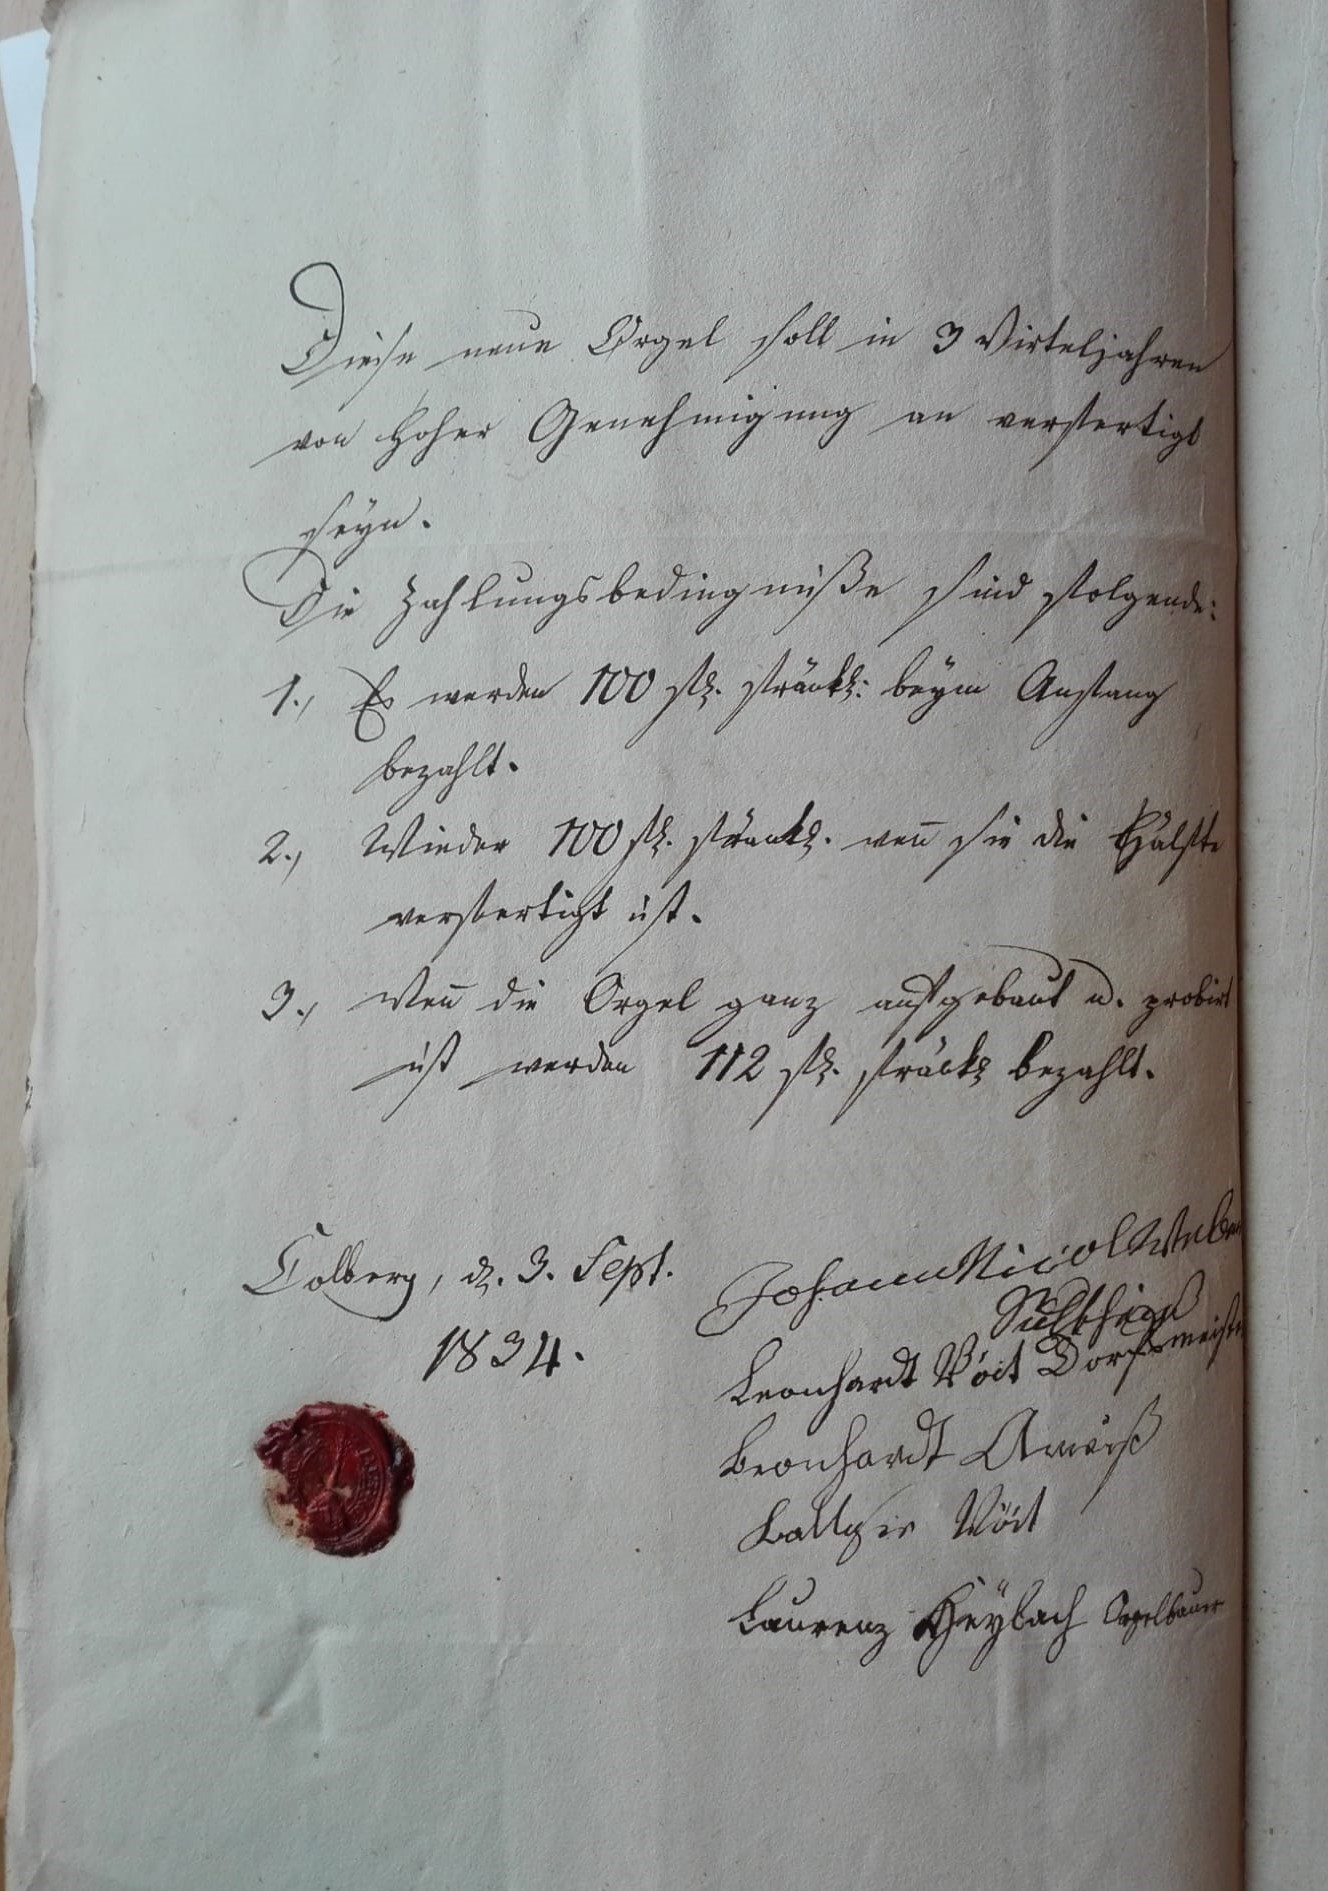 Diese neue Orgel soll in 3 Virteljahren
von hoher Genehmigung an verfertigt
seyn.
Die Zahlungsbedingniße sind folgende:
1., Es werden 100 fl. fränkl: beym Anfang
bezahlt.
2., Wieder 100 fl. fränkl. wen̄ sie die Hälfte
verfertigt ist.
3., Wen̄ die Orgel ganz aufgebaut u. probirt
ist werden 112 fl. fränkl bezahlt.
Colberg, d. 3. Sept.
1834.
Johann Nicol Weber
Schultheiß
Leonhardt Voit Dorfsmeister
Leonhardt Ameiß
Voit
Laurenz Heybach Orgelbauer